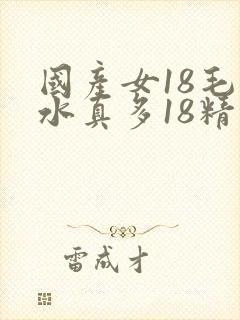 國產女18毛
水真多18精
雷成才